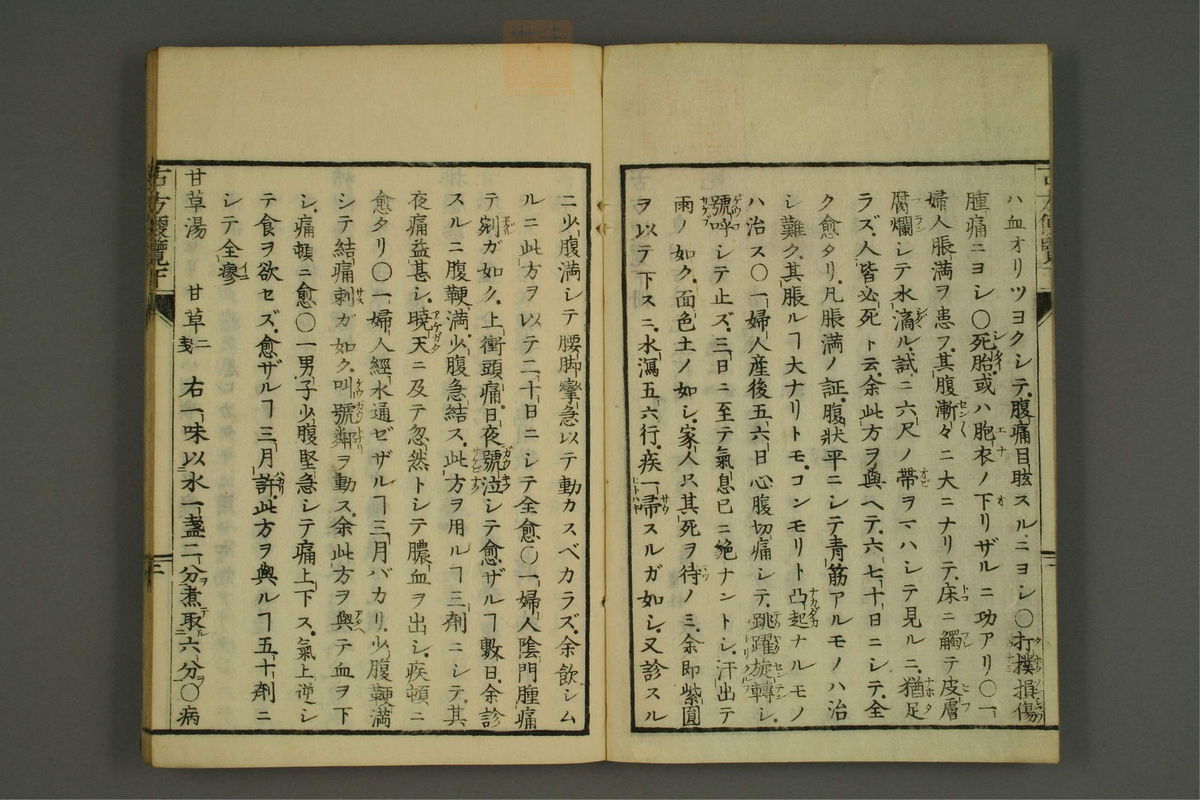 ハ血オリツヨクシテ腹痛目眩スルニヨシ〇打撲損傷
腫痛ニヨシ〇死胎或ハ胞衣ノ下リザルニ功アリ〇一
婦人脹満ヲ患フ其腹漸々ニ大ニナリテ床ニ觸テ皮膚
腐爛シテ水滴ル試ニ六尺ノ帶ヲマハシテ見ルニ猶足
ラズ人皆必死ト云余此方ヲ與ヘテ六七十日ニシテ全
ク愈タリ凡脹満ノ証腹狀平ニシテ青筋アルモノハ治
シ難ク其脹ルヿ大ナリトモコンモリト凸起ナルモノ
ハ治ス〇一婦人産後五六日心腹切痛シテ跳躍旋轉シ
號呼シテ止ズ三日ニ至テ氣息已ニ絶ナントシ汗出テ
雨ノ如ク面色土ノ如シ家人只其死ヲ待ノミ余即紫圓
ヲ以テ下スニ水瀉五六行疾一掃スルガ如シ又診スル
ニ少腹満シテ腰脚攣急以テ動カスベカラズ余飲シム
ルニ此方ヲ以テ二十日ニシテ全愈〇一婦人陰門腫痛
テ剜ガ如ク上衝頭痛日夜號泣シテ愈ザルヿ數日余診
スルニ腹鞕満少腹急結ス此方ヲ用ルヿ三劑ニシテ其
夜痛益甚シ曉天ニ及テ忽然トシテ膿血ヲ出シ疾頓ニ
愈タリ〇一婦人經水通ゼザルヿ三月バカリ少腹鞕満
シテ結痛刺ガ如ク叫號鄰ヲ動ス余此方ヲ與テ血ヲ下
シ痛頓ニ愈〇一男子少腹堅急シテ痛上下ス氣上逆シ
テ食ヲ欲セズ愈ザルヿ三月許此方ヲ與ルヿ五十劑ニ
シテ全瘳
甘草湯　甘草二戔　右一味以水一盞二分煮取六分〇病